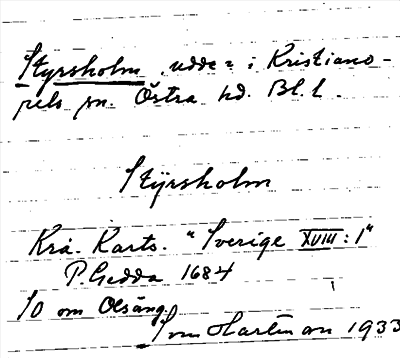 Styrsholm, udde i Kristiano-
pels sn. Östra hd. Bl. l.
Styrsholm
Kra. Karts. "Sverige XVIII:1"
P. Gedda 1684
SO om Olsäng.
Sven Hartman 1933